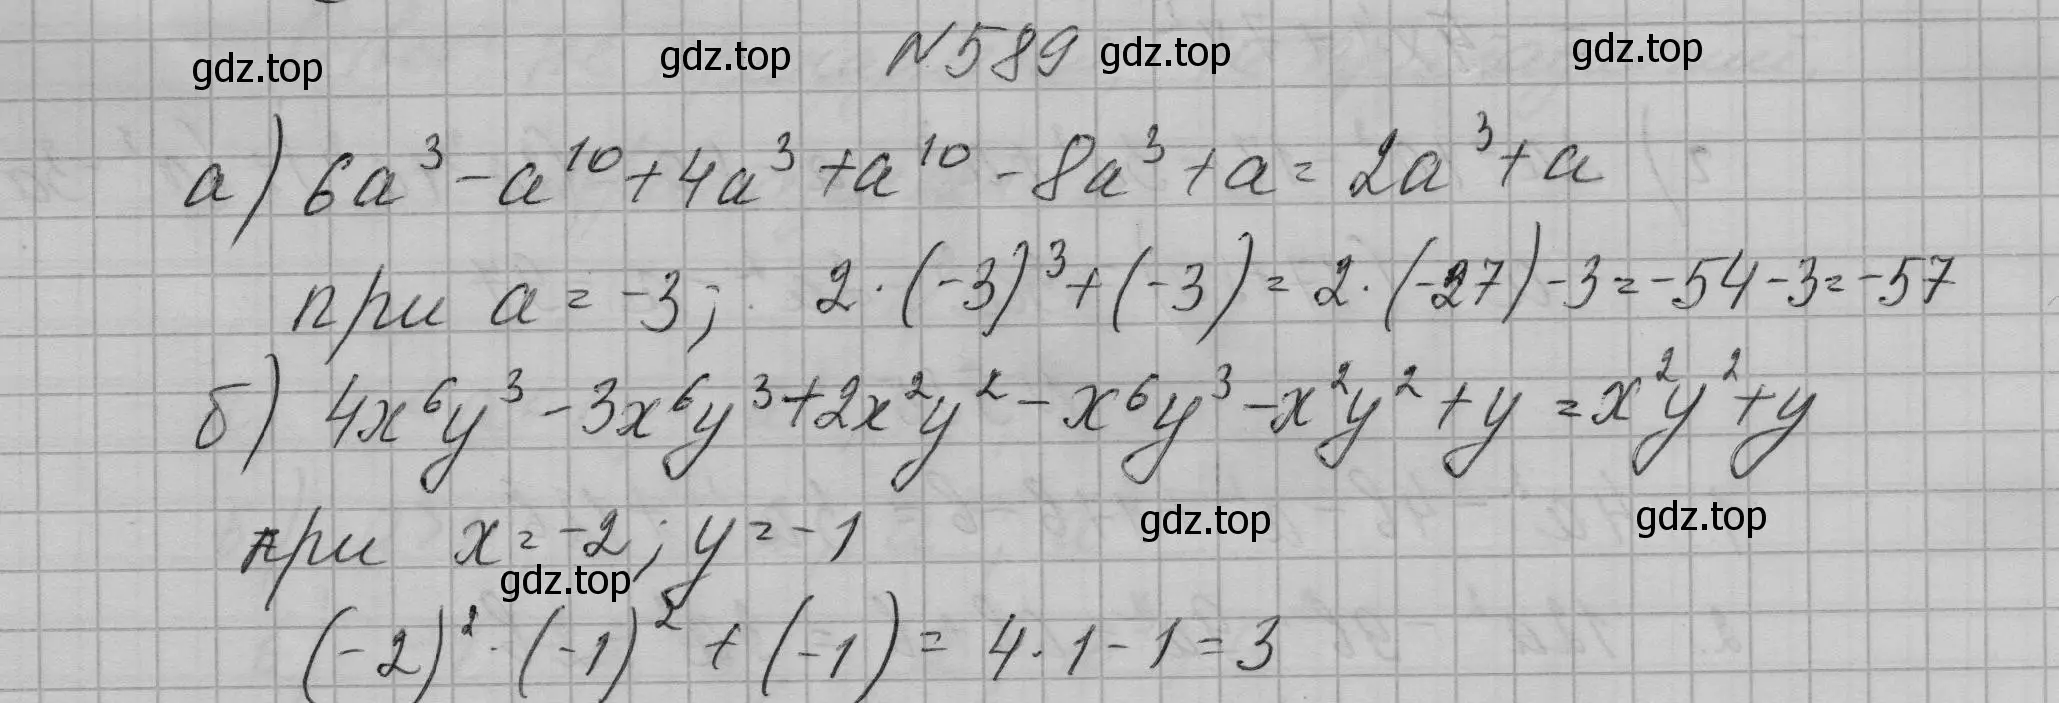 gdz.top gdz.top № 589 gdz.top gdz.top
а) 6a³ - a¹⁰ + 4a³ + a¹⁰ - 8a³ + a = 2a³ + a
при a = -3; 2·(-3)³ + (-3) = 2·(-27) - 3 = -54 - 3 = -57
б) 4x⁶y³ - 3x⁶y³ + 2x²y² - x⁶y³ - x²y² + y = x²y² + y
при x = -2; y = -1 gdz.top gdz.top
gdz.top
(-2)²·(-1)² + (-1) = 4·1 - 1 = 3